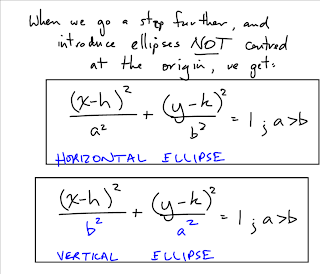 When we go a step further, and
introduce ellipses NOT centred
at the origin, we get:
(x-h)²/a² + (y-k)²/b² = 1 ; a>b
HORIZONTAL ELLIPSE
(x-h)²/b² + (y-k)²/a² = 1 ; a>b
VERTICAL ELLIPSE